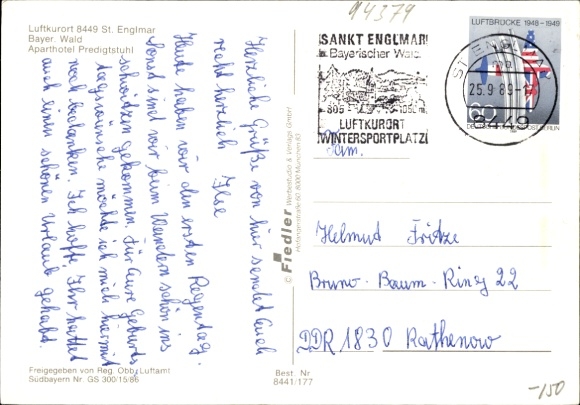 94379
Luftkurort 8449 St. Englmar
Bayer. Wald
Aparthotel Predigtstuhl
Herzliche Grüße von hier sendet Euch
recht herzlich Ilse
Heute haben wir den ersten Regentag.
Sonst sind wir beim Wandern schön ins
schwitzen gekommen. Für Eure Geburts
tagswünsche möchte ich mich hiermit
noch bedanken. Ich hoffe, Ihr hattet
auch einen schönen Urlaub gehabt.
Freigegeben von Reg. Obb. Luftamt
Südbayern Nr. GS 300/15/86
© Fiedler Werbestudio & Verlags GmbH
8000 München 83
Best. Nr
8441/177
SANKT ENGLMAR
Bayerischer Wald
805 - 1050 m
LUFTKURORT
WINTERSPORTPLATZ
LUFTBRÜCKE 1948-1949
60
DEUTSCHE BUNDESPOST BERLIN
ST ENGLMAR
25.9.89-17
8449
Fam.
Helmut Fritze
Bruno-Baum-Ring 22
DDR 1830 Rathenow
-150